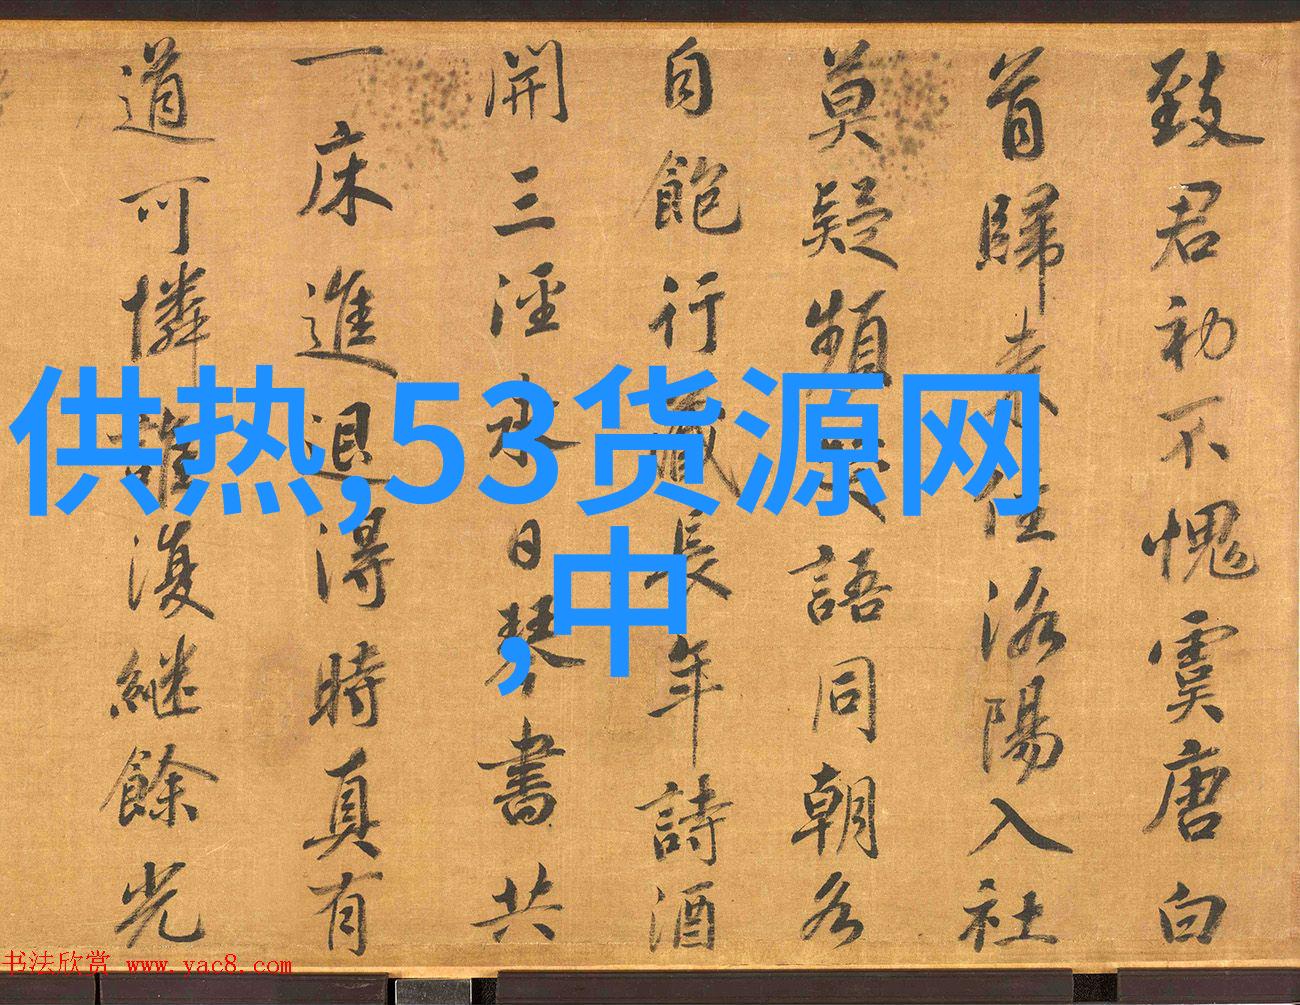 致君初不愧虞唐白
首歸来住洛陽入社
莫疑頻笑語同朝各
自飽行藏長年詩酒
開三涇永日琴書共
一床進退得時真有
道可憐誰復繼餘光
供热,53货源网
,中
书法欣赏 www.yac8.com